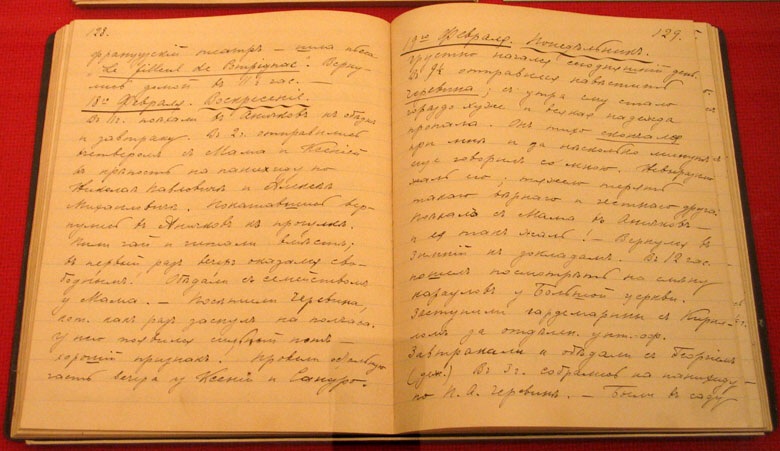 128.
французскій театръ – шла пьеса
"Le filleul de Pompignac". Верну-
лись домой въ 11½ час.
18го Февраля. Воскресеніе.
Въ 11ч. поѣхали въ Аничковъ къ обѣднѣ
и завтраку. Въ 2ч. отправились
четверомъ съ Мама и Ксеніей
въ крѣпость на панихиду по
Николаѣ Павловичѣ и Алексѣѣ
Михайловичѣ. Покатавшись вер-
нулись въ Аничковъ къ прогулкѣ.
Пили чай и читали вмѣстѣ;
въ первый разъ вечеръ оказался сво-
боднымъ. Обѣдали съ семействомъ
у Мама. – Посѣтили Черевина,
кот. какъ разъ заснулъ на полчаса.
У него появился глубокій потъ –
хорошій признакъ. Провели остальную
часть вечера у Ксеніи и Сандро.
129.
19го Февраля. Понедѣльникъ.
Грустно начался сегодняшній день.
Въ 9½ отправился навѣстить
Черевина; съ утра ему стало
гораздо хуже и всякая надежда
пропала. Онъ тихо скончался
при мнѣ и за нѣсколько минутъ
еще говорилъ со мною. Невыразимо
жаль его; тяжело терять
такого вѣрнаго и честнаго друга.
Поѣхалъ къ Мама въ Аничковъ –
и ея такъ жаль! – Вернулся въ
Зимній къ докладамъ. Въ 12 час.
пошли посмотрѣть на смѣну
карауловъ у Большой церкви.
Заступили гардемарины съ Кирил-
ломъ за отдѣлен. унт.-оф.
Завтракали и обѣдали съ Георгіемъ
(деж.) Въ 3ч. собрались на панихиду
по П. А. Черевинѣ. – Были въ саду